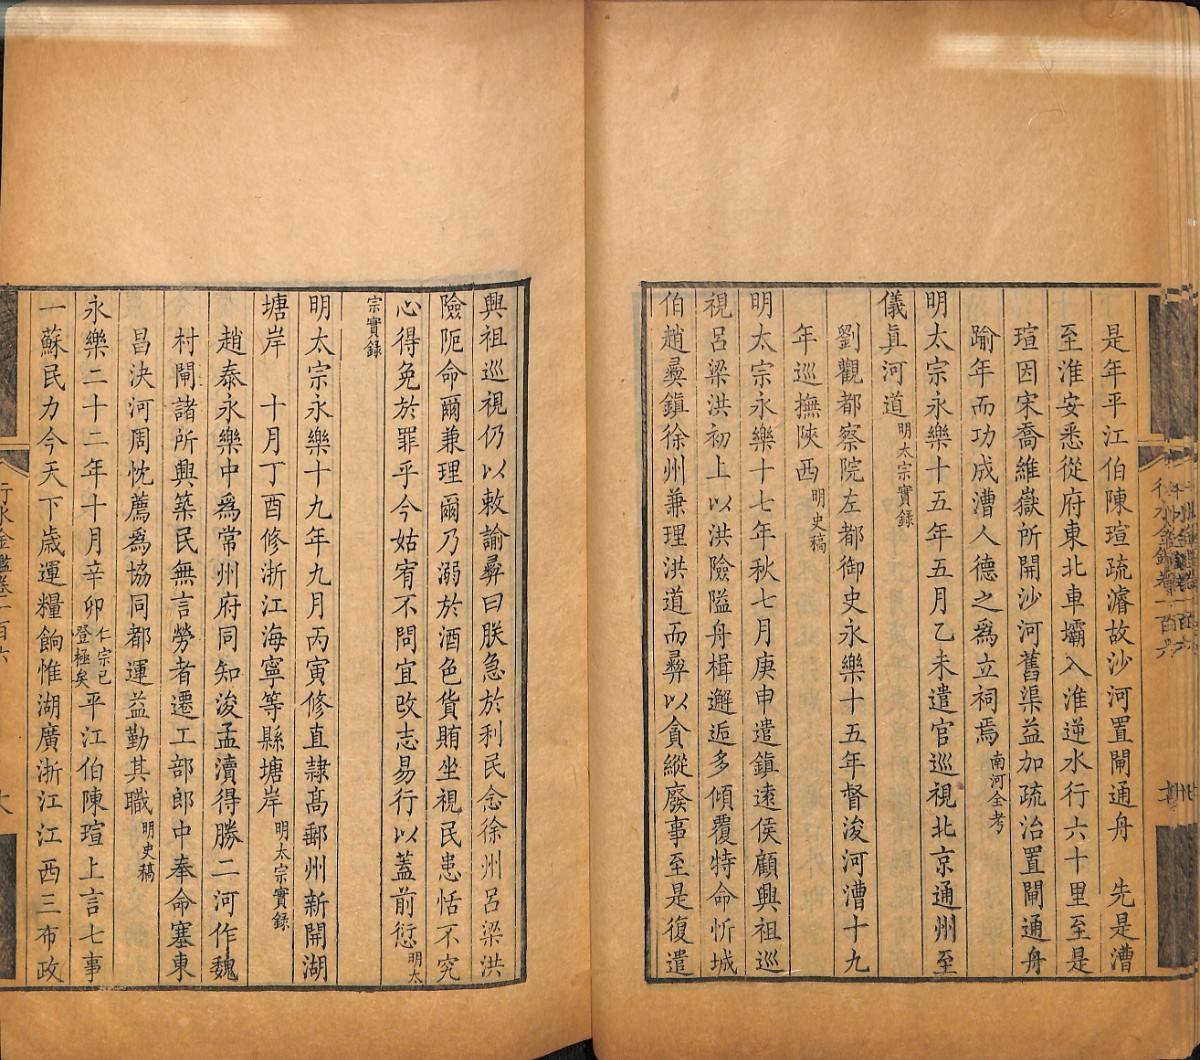 是年平江伯陳瑄疏濬故沙河置閘通舟　先是漕
至淮安悉從府東北車壩入淮逆水行六十里至是
瑄因宋喬維嶽所開沙河舊渠益加疏治置閘通舟
踰年而功成漕人德之爲立祠焉南河全考
明太宗永樂十五年五月乙未遣官巡視北京通州至
儀真河道明太宗實錄
劉觀都察院左都御史永樂十五年督浚河漕十九
年巡撫陝西明史稿
明太宗永樂十七年秋七月庚申遣鎮遠侯顧興祖巡
視呂梁洪初上以洪險隘舟楫邂逅多傾覆特命忻城
伯趙彞鎮徐州兼理洪道而彞以貪縱廢事至是復遣
興祖巡視仍以敕諭彞曰朕急於利民念徐州呂梁洪
險阨命爾兼理爾乃溺於酒色貨賄坐視民患恬不究
心得免於罪乎今姑宥不問宜改志易行以蓋前愆明太
宗實錄
明太宗永樂十九年九月丙寅修直隷髙郵州新開湖
塘岸　十月丁酉修浙江海寧等縣塘岸明太宗實錄
趙泰永樂中爲常州府同知浚孟瀆得勝二河作魏
村閘諸所興築民無言勞者遷工部郎中奉命塞東
昌決河周忱薦爲協同都運益勤其職明史稿
永樂二十二年十月辛卯仁宗已登極矣平江伯陳瑄上言七事
一蘇民力今天下歳運糧餉惟湖廣浙江江西三布政
行水金鑑卷一百六